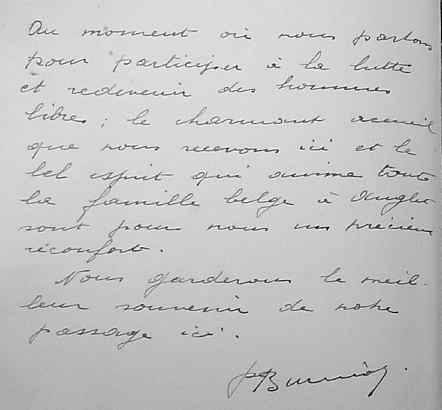 Au moment où nous partons
pour participer à la lutte
et redevenir des hommes
libres ; le charmant accueil
que nous recevons ici et le
bel esprit qui anima toute
la famille belge à Anglet
sont pour nous un précieux
réconfort.
Nous garderons le meil-
leur souvenir de notre
passage ici.